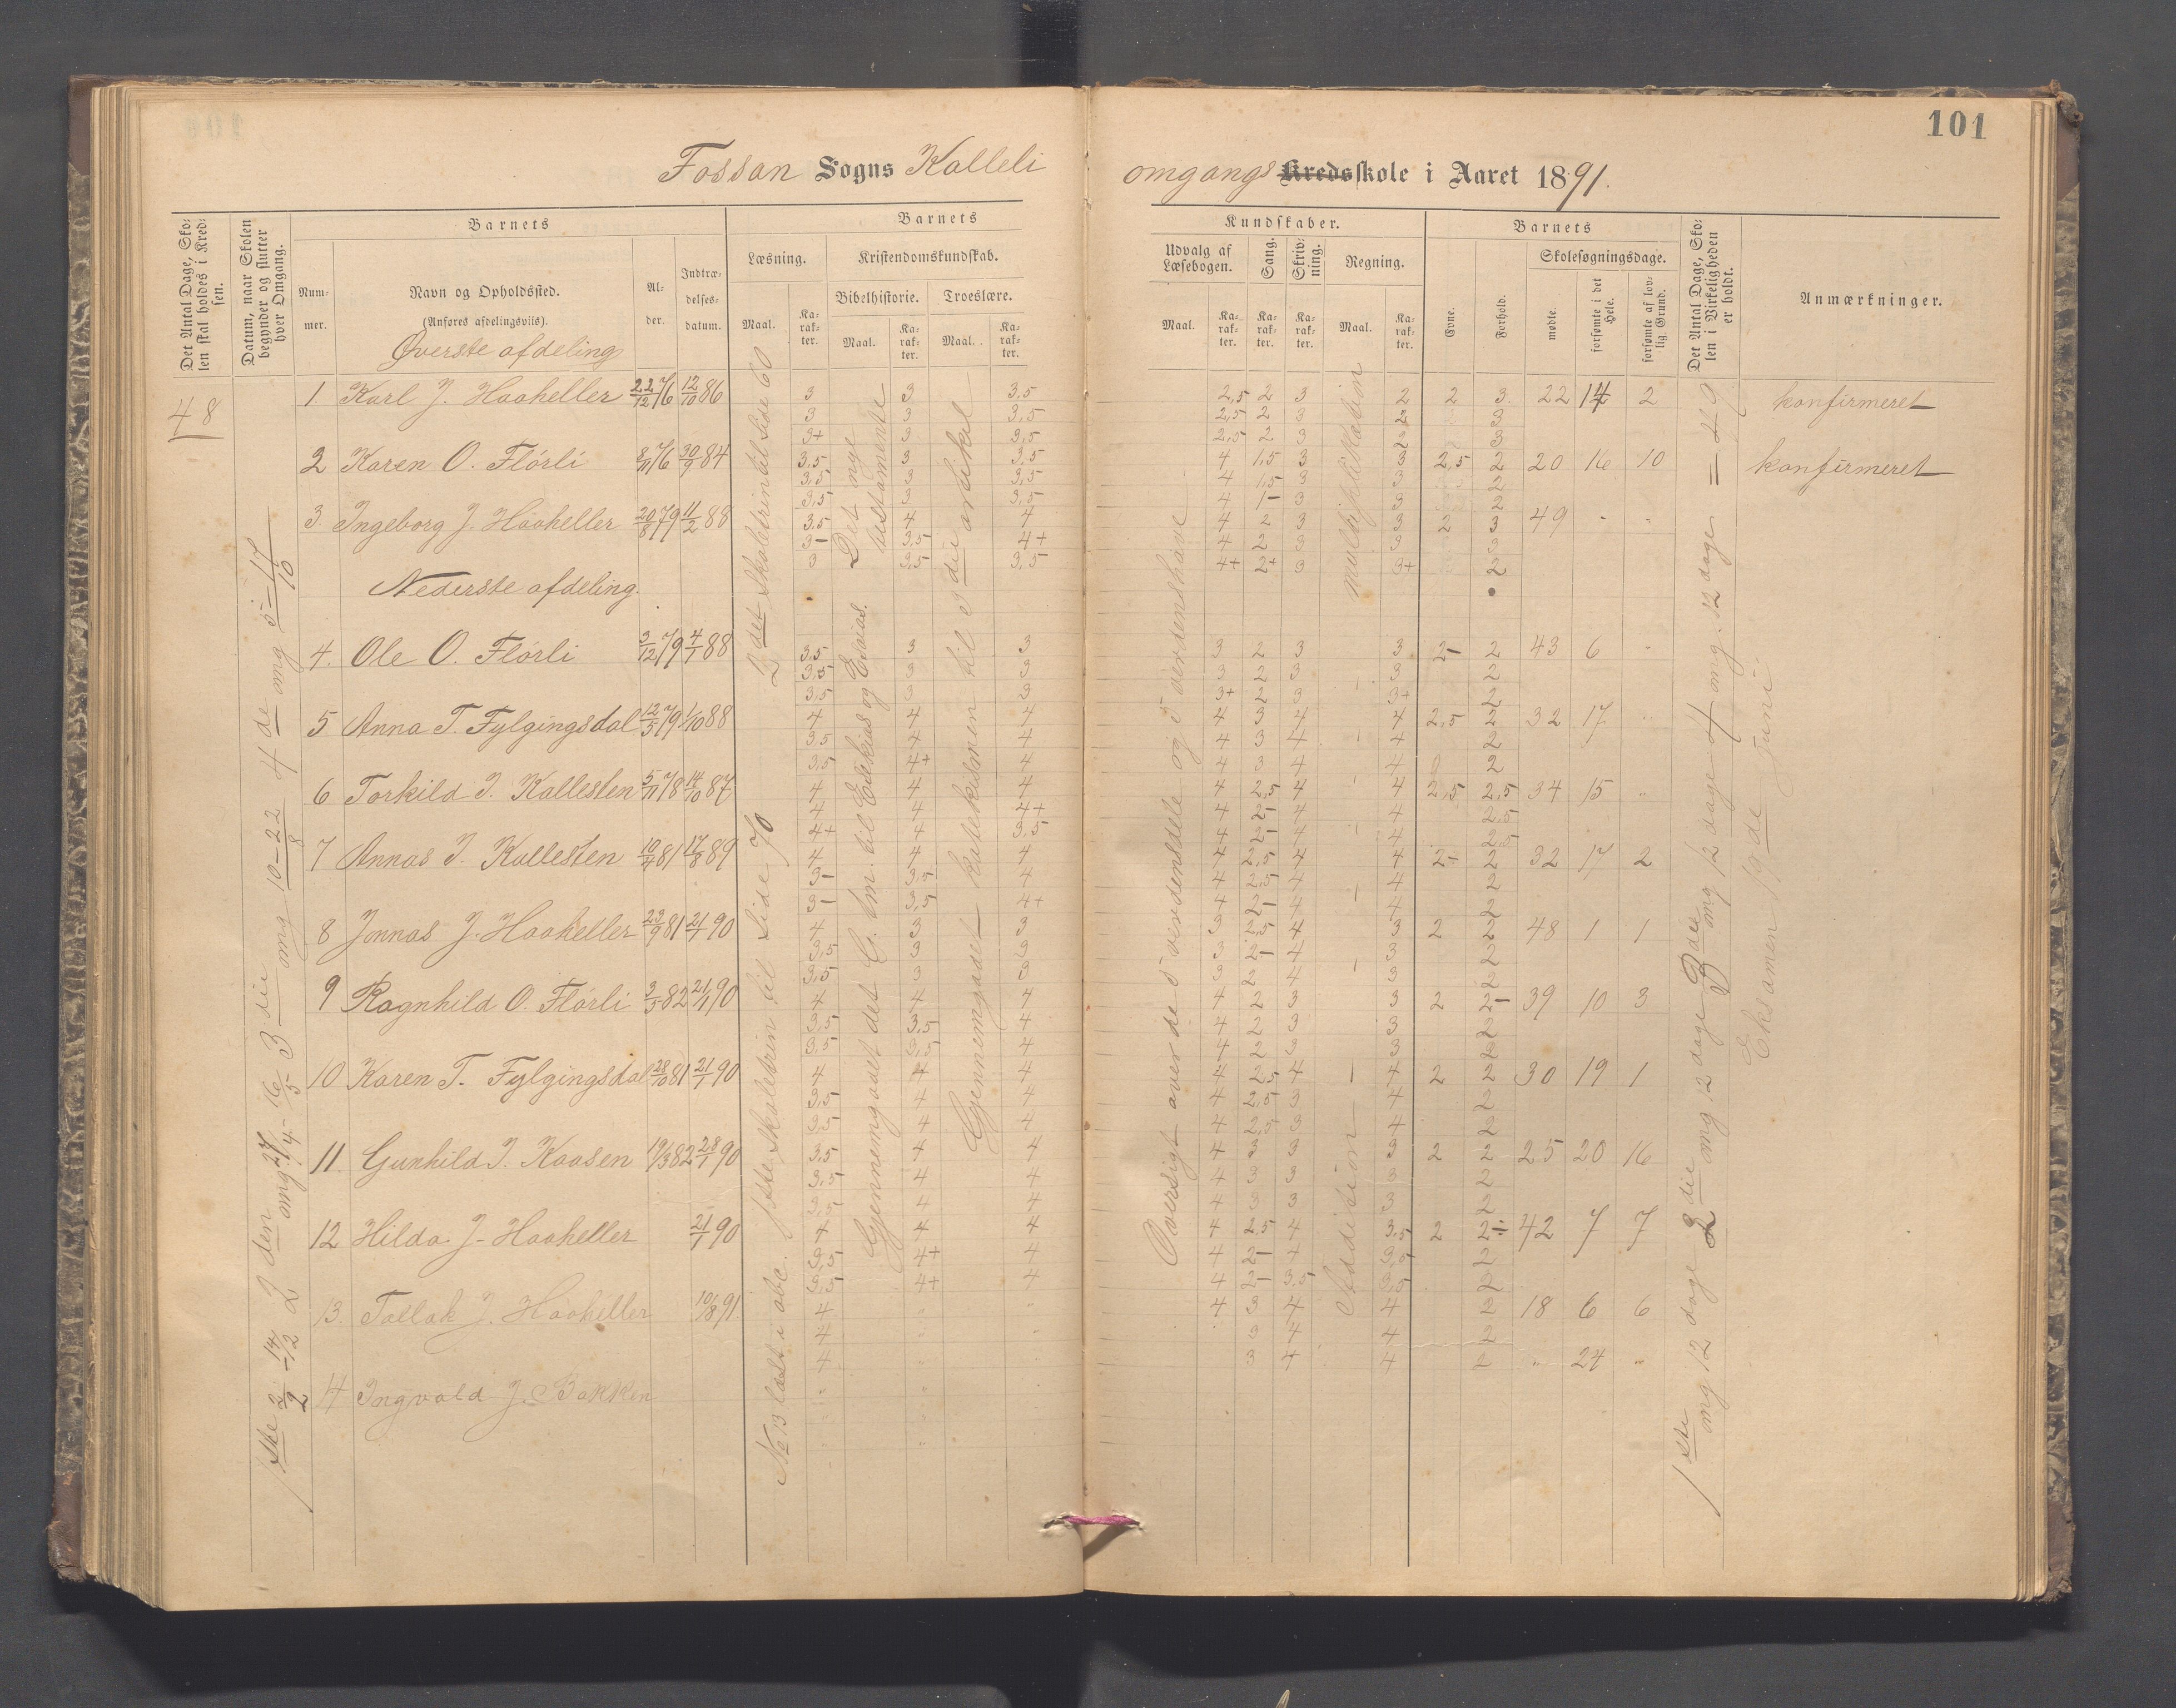 101
Fossan Sogns Kalleli omgangs Kredsskole i Aaret 1891.
Det Antal Dage, Skolen skal holdes i Kredsen.
Datum, naar Skolen begynder og slutter hver Omgang.
Barnets
Nummer.
Navn og Opholdssted.
(Anføres afdelingsviis).
Alder.
Indtrædelsesdatum.
Barnets
Læsning.
Kristendomskundskab.
Bibelhistorie.
Troeslære.
Maal.
Karakter.
Maal.
Karakter.
Maal.
Karakter.
Kundskaber.
Udvalg af Læsebogen.
Sang.
Skrivning.
Regning.
Maal.
Karakter.
Karakter.
Karakter.
Maal.
Karakter.
Barnets
Evne.
Forhold.
Skolesøgningsdage.
mødte.
forsømte i det Hele.
forsømte af lovlig Grund.
Det Antal Dage, Skolen i Virkeligheden er holdt.
Anmærkninger.
48
Øverste afdeling
1 Karl J. Haaheller 22/12 76 12/10 86 3 3 3,5 2,5 2 3 2 2 3 22 14 2 konfirmeret
3 3 3,5 2,5 2 3 2 3
3+ 3 3,5 2,5 2 3 2 3
2 Karen O. Flørli 8/11 76 30/9 84 3,5 3 3,5 4 1,5 3 3 2,5 2 20 16 10 konfirmeret
3,5 3 3,5 4 1,5 3 3 2
3,5 3 3,5 4 1- 3 3 2
3 Ingeborg J. Haaheller 20/8 79 11/2 88 3,5 4 4 4 2 3 3 2 3 49 " "
3- 3,5 4+ 4 2 3 3 3
3 3,5 3,5 4+ 2+ 3 3+ 2
Nederste afdeling.
4. Ole O. Flørli 3/12 79 4/1 88 3,5 3 3 3 2 3 3 2- 2 43 6 "
3,5 3 3 3 2 3 3 2
3,5 3 3 3+ 2 3 3+ 2
5 Anna T. Fylgingsdal 12/5 79 1/10 88 4 4 4 4 3 4 4 2,5 2 32 17 "
3,5 4 4 4 3 4 4 2
3,5 4+ 4 4 3 4 4 2
6 Torkild I. Kallesten 5/11 78 14/10 87 4 4 4 4 2,5 4 4 2,5 2,5 34 15 "
4 4 4+ 4 2- 4 4 2,5
4+ 4 3,5 4 2- 4 4 2,5
7 Annas I. Kallesten 10/4 81 17/8 89 4 4 4 4 2,5 4 4 2+ 2 32 17 2
3- 3,5 4 4 2,5 4 4 2
3- 3,5 4+ 4 2- 4 4 2
8 Jonnas J. Haaheller 23/9 81 21/1 90 4 3 3 3 2,5 4 3 2 2 48 1 1
3,5 3 3 3 2- 4 3 2
3,5 3 3 3 2 4 3 2
9 Ragnhild O. Flørli 3/5 82 21/1 90 4 4 4 4 2 3 3 2 2- 39 10 3
3,5 3,5 4 4 2 3 3 2
3,5 3,5 4 4 2 3 3 2
10 Karen T. Fylgingsdal 28/10 81 21/1 90 4 4 4 4 2,5 4 4 2 2 30 19 1
3,5 4 4 4 2,5 3 4 2
3,5 4 4 4 2,5 3 4 2
11. Gunhild I. Kaasen 19/3 82 28/1 90 3,5 4 4 4 3 3 3 2 2 25 20 16
3,5 4 4 4 3 3 3 2
3,5 4 4 4 3 3 3 2
12 Hilda J. Haaheller 21/1 90 4 4 4 4 2,5 4 3,5 2 2÷ 42 7 7
3,5 4+ 4 4 2- 4 3,5 2
3,5 4+ 4 4 2- 3,5 3,5 2
13. Tallak J. Haaheller 10/8 91 4 " " 4 3 4 4 2 18 6 6
4 " " 3 4 4 2
4 " 3 4 4 2 " 24 "
14 Ingvald J. Bakken
1ste 2/2 - 14/2 2den omg. 27/4 - 16/5 3die omg 10-22/8 4de omg 5-17/10
No 13 læst i abc. 1ste Skoletrin til Side 70
2det Skoletrin til Side 60
Gjennemgaaet det G. tm. til Esekias og Esaias.
Det nye testamente
Gjennemgaaet katekismen til 3die artikel
Oversigt over de 5 verdensdele og 5 verdenshave
Addition
multiplikation
1ste omg 12 dage 2die omg 12 dage 3die omg 12 dage 4 omg. 12 dage = 49
Eksamen de Juni